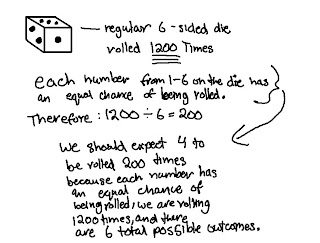 regular 6-sided die
rolled 1200 Times
each number from 1-6 on the die has
an equal chance of being rolled.
Therefore: 1200 ÷ 6 = 200
We should expect 4 to
be rolled 200 times
because each number has
an equal chance of
being rolled, we are rolling
1200 times, and there
are 6 total possible outcomes.